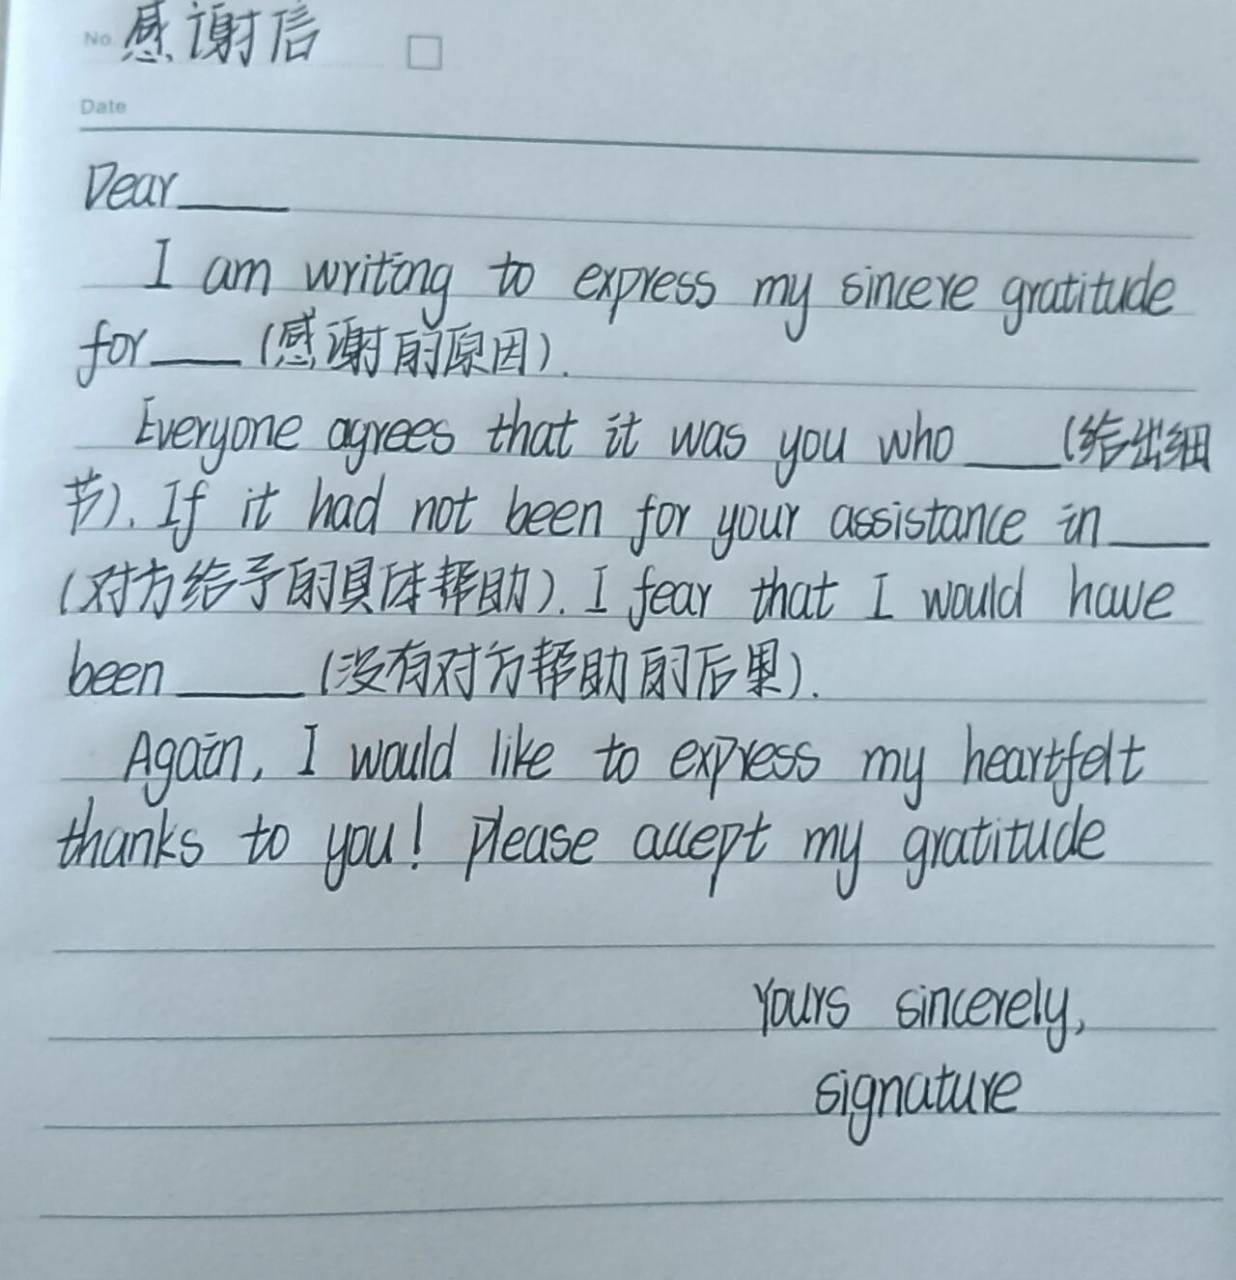 No. 感谢信
Date
Dear____
I am writing to express my sincere gratitude
for____(感谢的原因).
Everyone agrees that it was you who____(给出细
节). If it had not been for your assistance in____
(对方给予的具体帮助). I fear that I would have
been____(没有对方帮助的后果).
Again, I would like to express my heartfelt
thanks to you! Please accept my gratitude
Yours sincerely,
signature